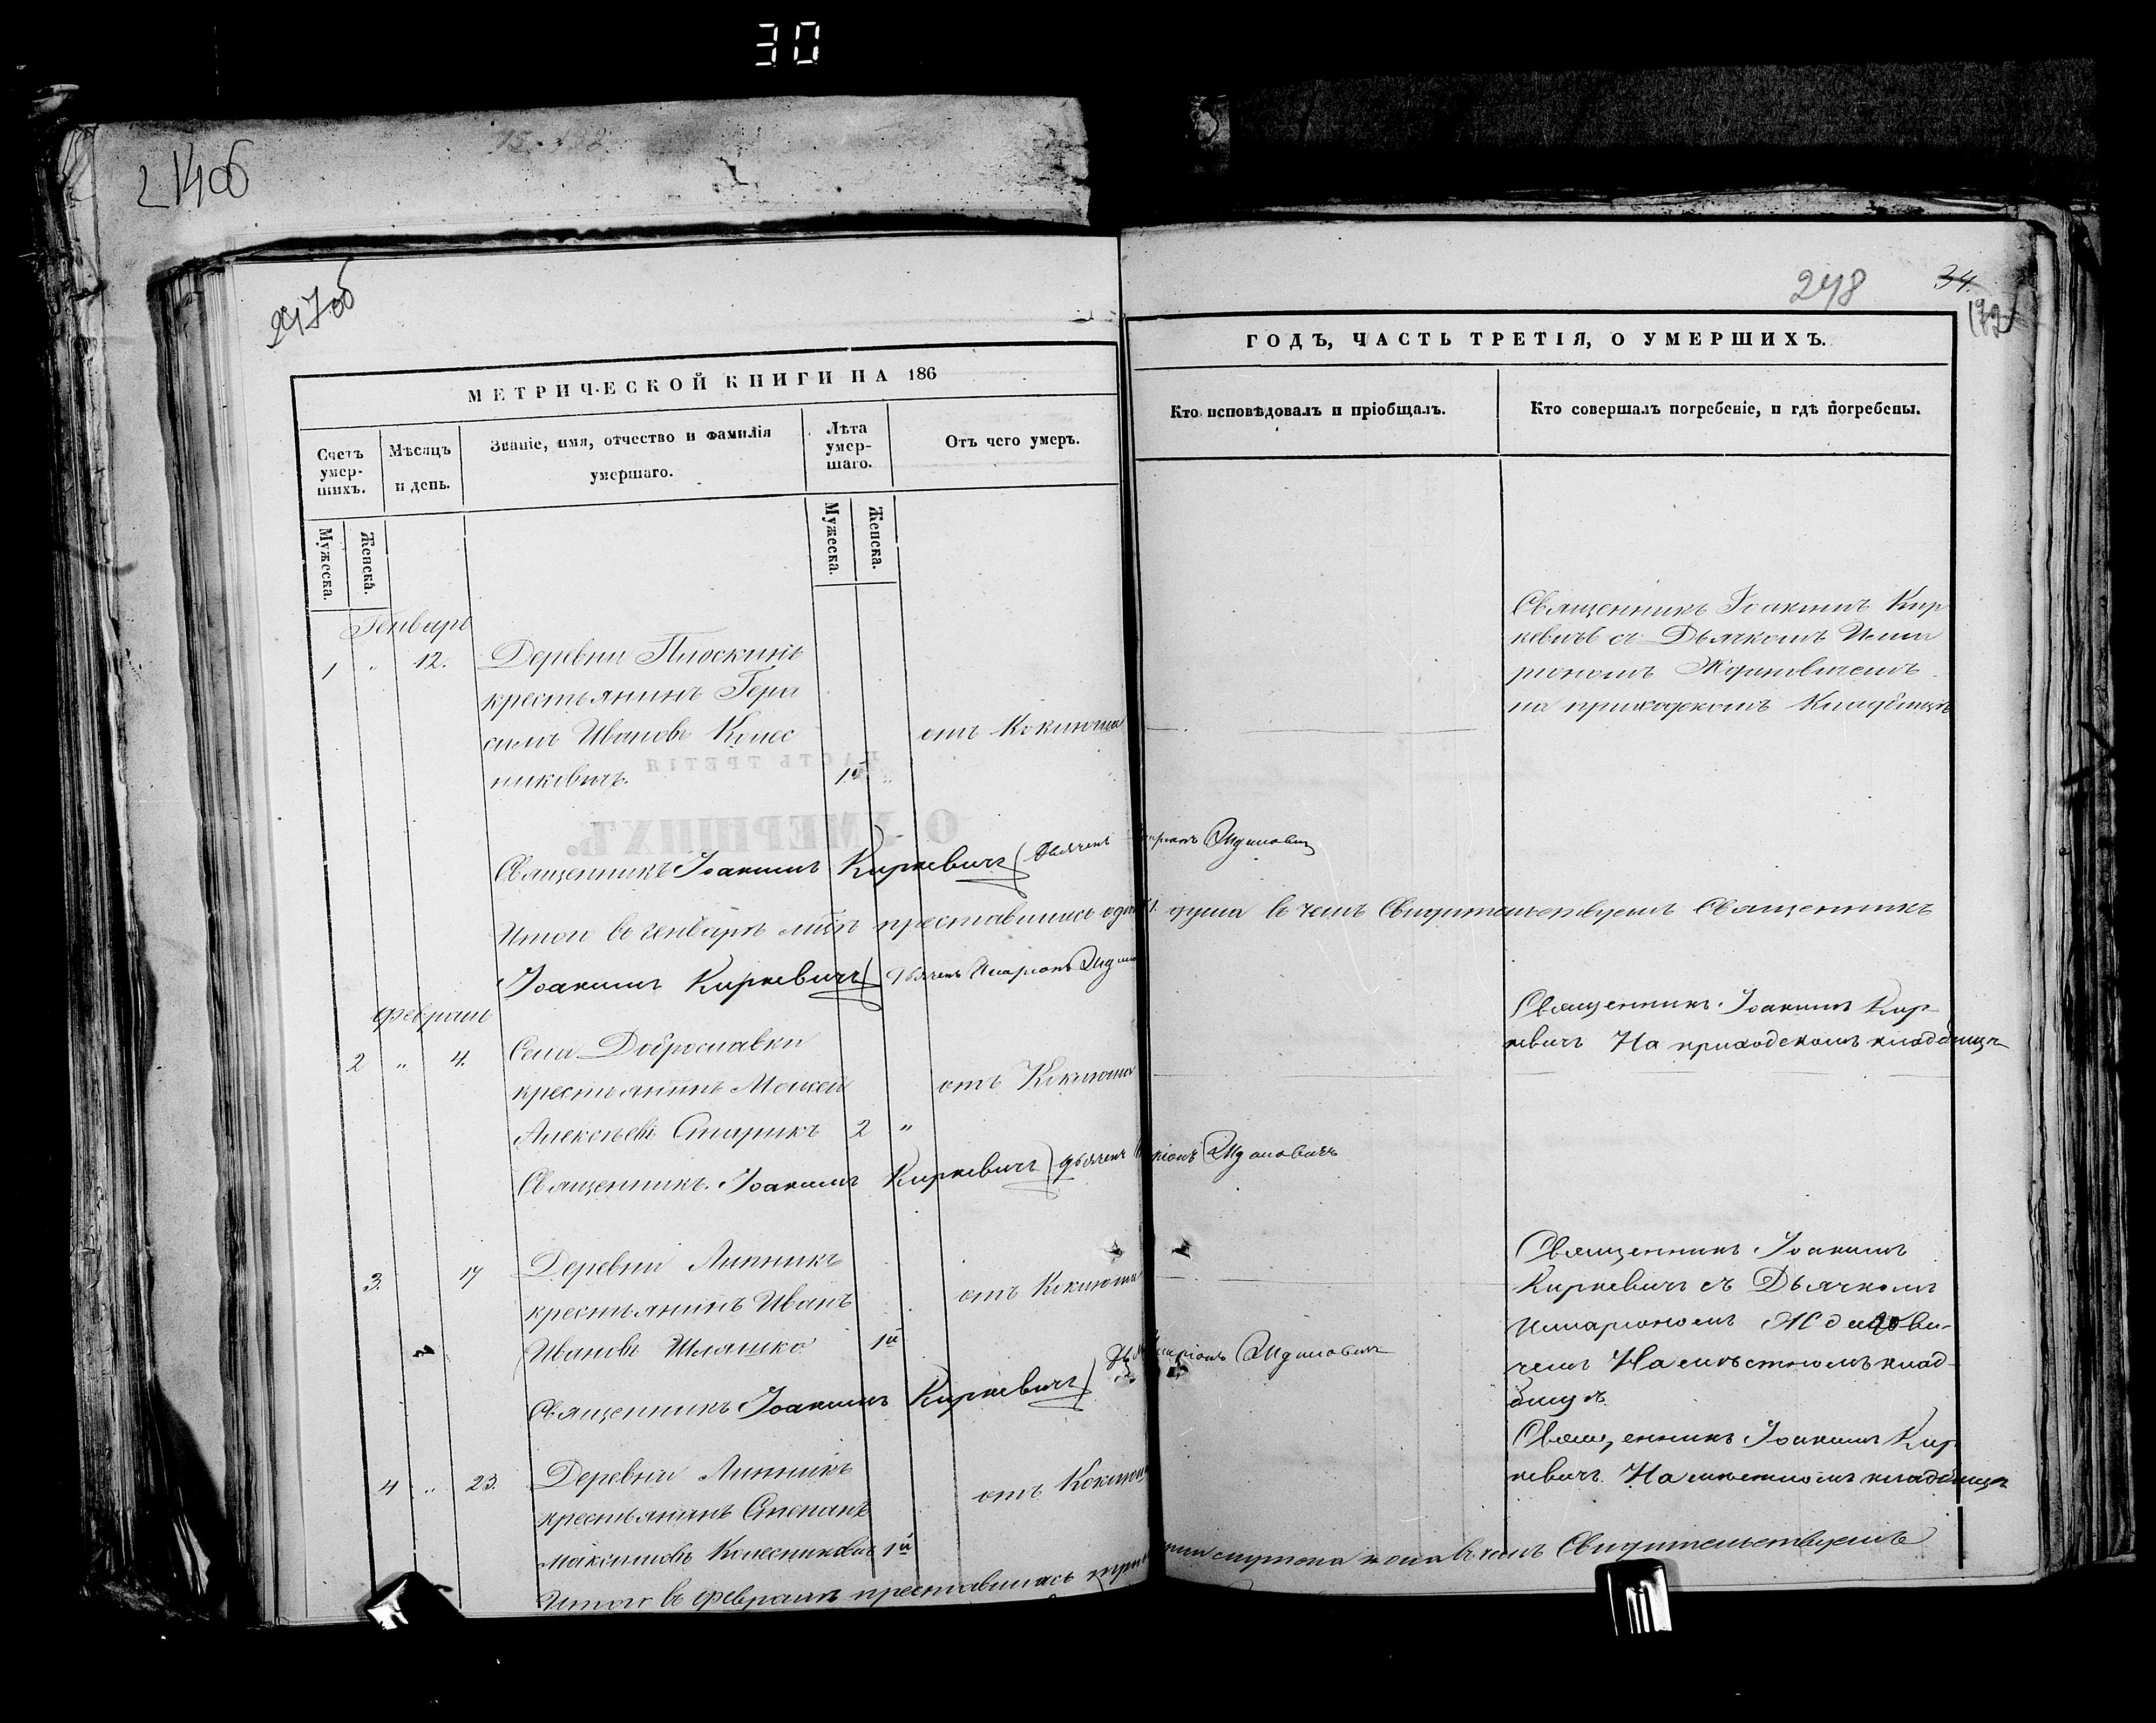 30
21406
247об
248
34.
МЕТРИЧЕСКОЙ КНИГИ НА 186
ГОДЪ, ЧАСТЬ ТРЕТІЯ, О УМЕРШИХЪ.
Счетъ умер-шихъ.
Мѣсяцъ и день.
Званіе, имя, отчество и фамилія умершаго.
Лѣта умер-шаго.
Отъ чего умеръ.
Кто исповѣдовалъ и пріобщалъ.
Кто совершалъ погребеніе, и гдѣ погребены.
Мужеска.
Женска.
Мужеска.
Женска.
Генварь
1 " 12.
Деревни Плоскинь
крестьянинъ Гера
симъ Ивановъ Колес
никовичъ.
1й "
отъ Коклюша
Священникъ Іоакимъ Кир
кевичъ съ Дьячкомъ Илла
ріономъ Ждановичемъ
на приходскомъ Кладбищѣ
Священникъ Іоакимъ Киркевичъ Дьячекъ Ждановичъ
Итого въ генварѣ преставилась одна 1. душа въ чемъ Свидительствуемъ Священникъ
Іоакимъ Киркевичъ Дьячекъ Иларіонъ
Февраль
2 " 4.
Села Доброславки
крестьянинъ Моисей
Алексѣевъ Старикъ
2 "
отъ Коклюша
Священникъ Іоакимъ Кир-
кевичъ На приходскомъ кладбищѣ
Священникъ Іоакимъ Киркевичъ Дьячекъ Ждановичъ
3. 17
Деревни Липникъ
крестьянинъ Иванъ
Ивановъ Шляшко
1й
отъ Коклюша
Священникъ Іоакимъ
Киркевичъ съ Дьячкомъ
Илларіономъ Ждано ви-
чемъ На мѣстномъ клад-
бищѣ.
Священникъ Іоакимъ Киркевичъ Ждановичъ
4 " 23.
Деревни Липникъ
крестьянинъ Степанъ
Максимовъ Колесниковичъ
1й
отъ Коклюша
Священникъ Іоакимъ Кир
кевичъ На мѣстномъ кладбищѣ
Итого въ Февралѣ преставилась три мужеска пола въ чемъ Свидительствуемъ